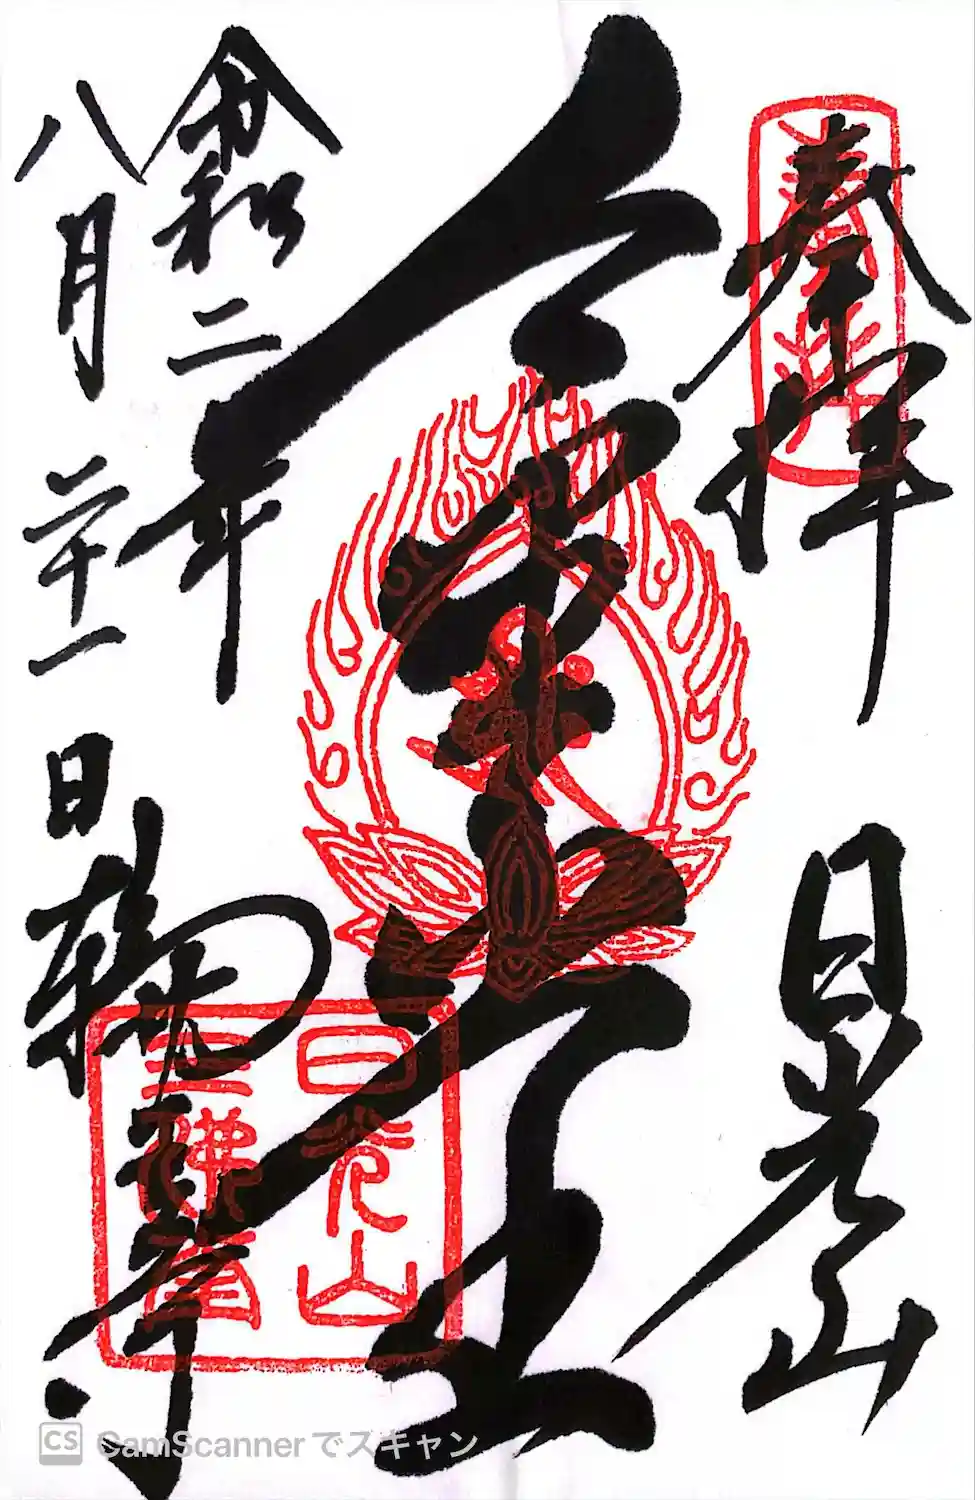 奉拝
日光山
金堂
令和二年
八月二十一日
輪王寺
日光山
三佛堂
CS CamScannerでスキャン